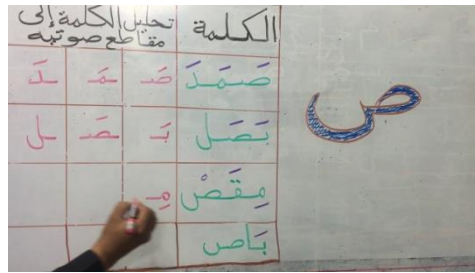 الكلمة تحليل الكلمة إلى
مقاطع صوتيه
صَمَدَ صَـ ـمَـ ـدَ
بَصَل بَـ ـصَـ ـل
مِقَصْ مِـ
بَاص
ص